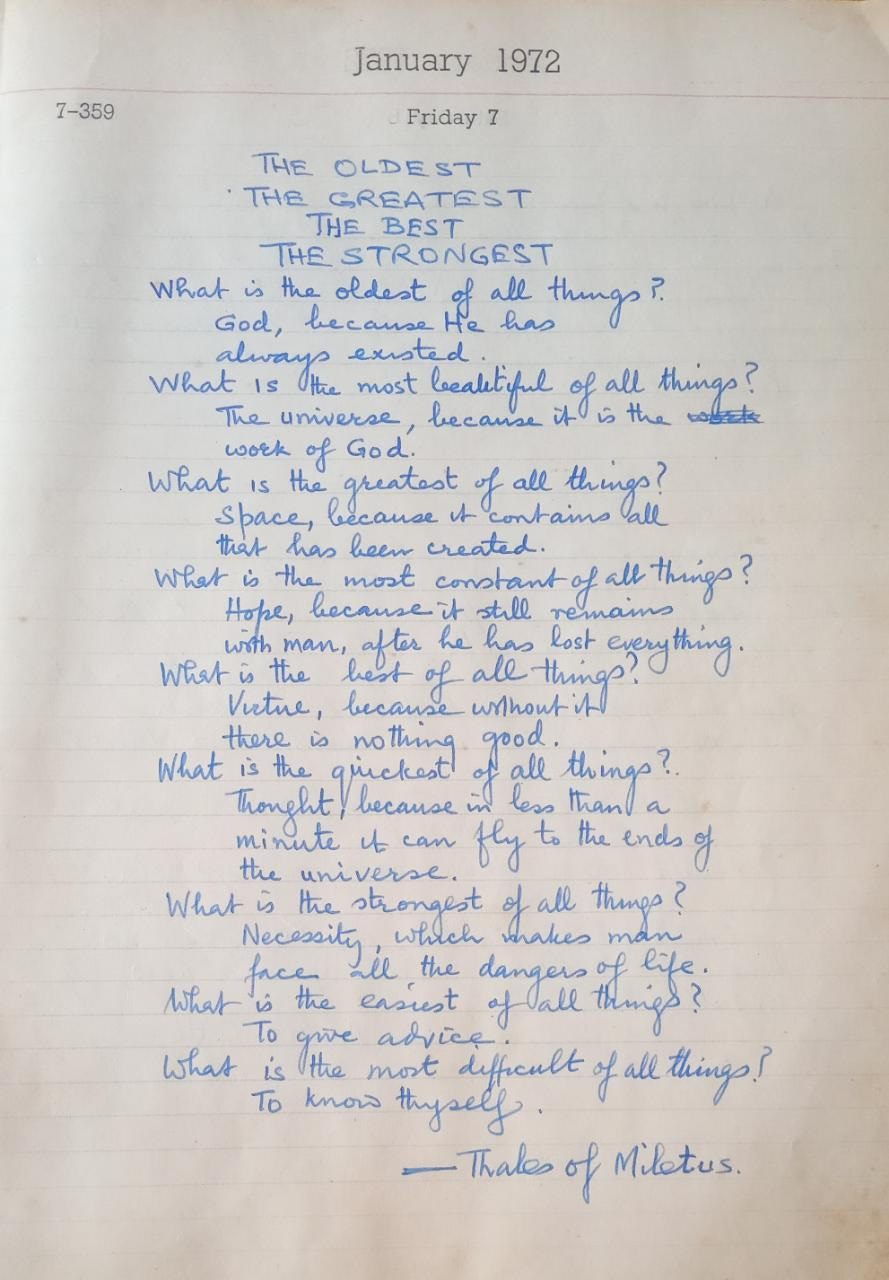 January 1972
7-359
Friday 7
THE OLDEST
THE GREATEST
THE BEST
THE STRONGEST
What is the oldest of all things?
God, because He has
always existed.
What is the most beautiful of all things?
The universe, because it is the work
work of God.
What is the greatest of all things?
Space, because it contains all
that has been created.
What is the most constant of all things?
Hope, because it still remains
with man, after he has lost everything.
What is the best of all things?
Virtue, because without it
there is nothing good.
What is the quickest of all things?
Thought, because in less than a
minute it can fly to the ends of
the universe.
What is the strongest of all things?
Necessity, which makes man
face all the dangers of life.
What is the easiest of all things?
To give advice.
What is the most difficult of all things?
To know thyself.
— Thales of Miletus.